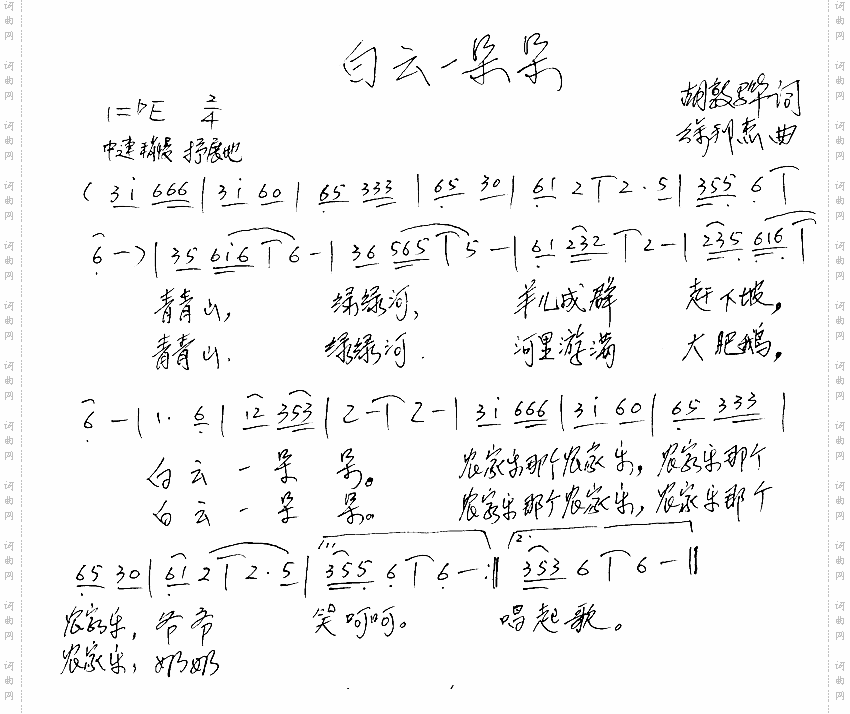 白云一朵朵
1=♭E 2/4
中速稍慢 抒展地
胡敦骅词
徐利杰曲
( 3i 666 | 3i 60 | 65 333 | 65 30 | 61 2 | 2· 5 | 355 6 |
6 - ) | 35 6i6 | 6 - | 36 565 | 5 - | 61 232 | 2 - | 235 616 |
青青山, 绿绿河, 羊儿成群 赶下坡,
青青山. 绿绿河. 河里游满 大肥鹅,
6 - | 1· 6 | 12 353 | 2 - | 2 - | 3i 666 | 3i 60 | 65 333 |
白云一朵朵。 农家乐那个农家乐, 农家乐那个
白云一朵朵。 农家乐那个农家乐, 农家乐那个
65 30 | 61 2 | 2· 5 | 1. 355 6 | 6 - :‖ 2. 353 6 | 6 - ‖
农家乐, 爷爷 笑呵呵。 唱起歌。
农家乐, 奶奶
词曲网